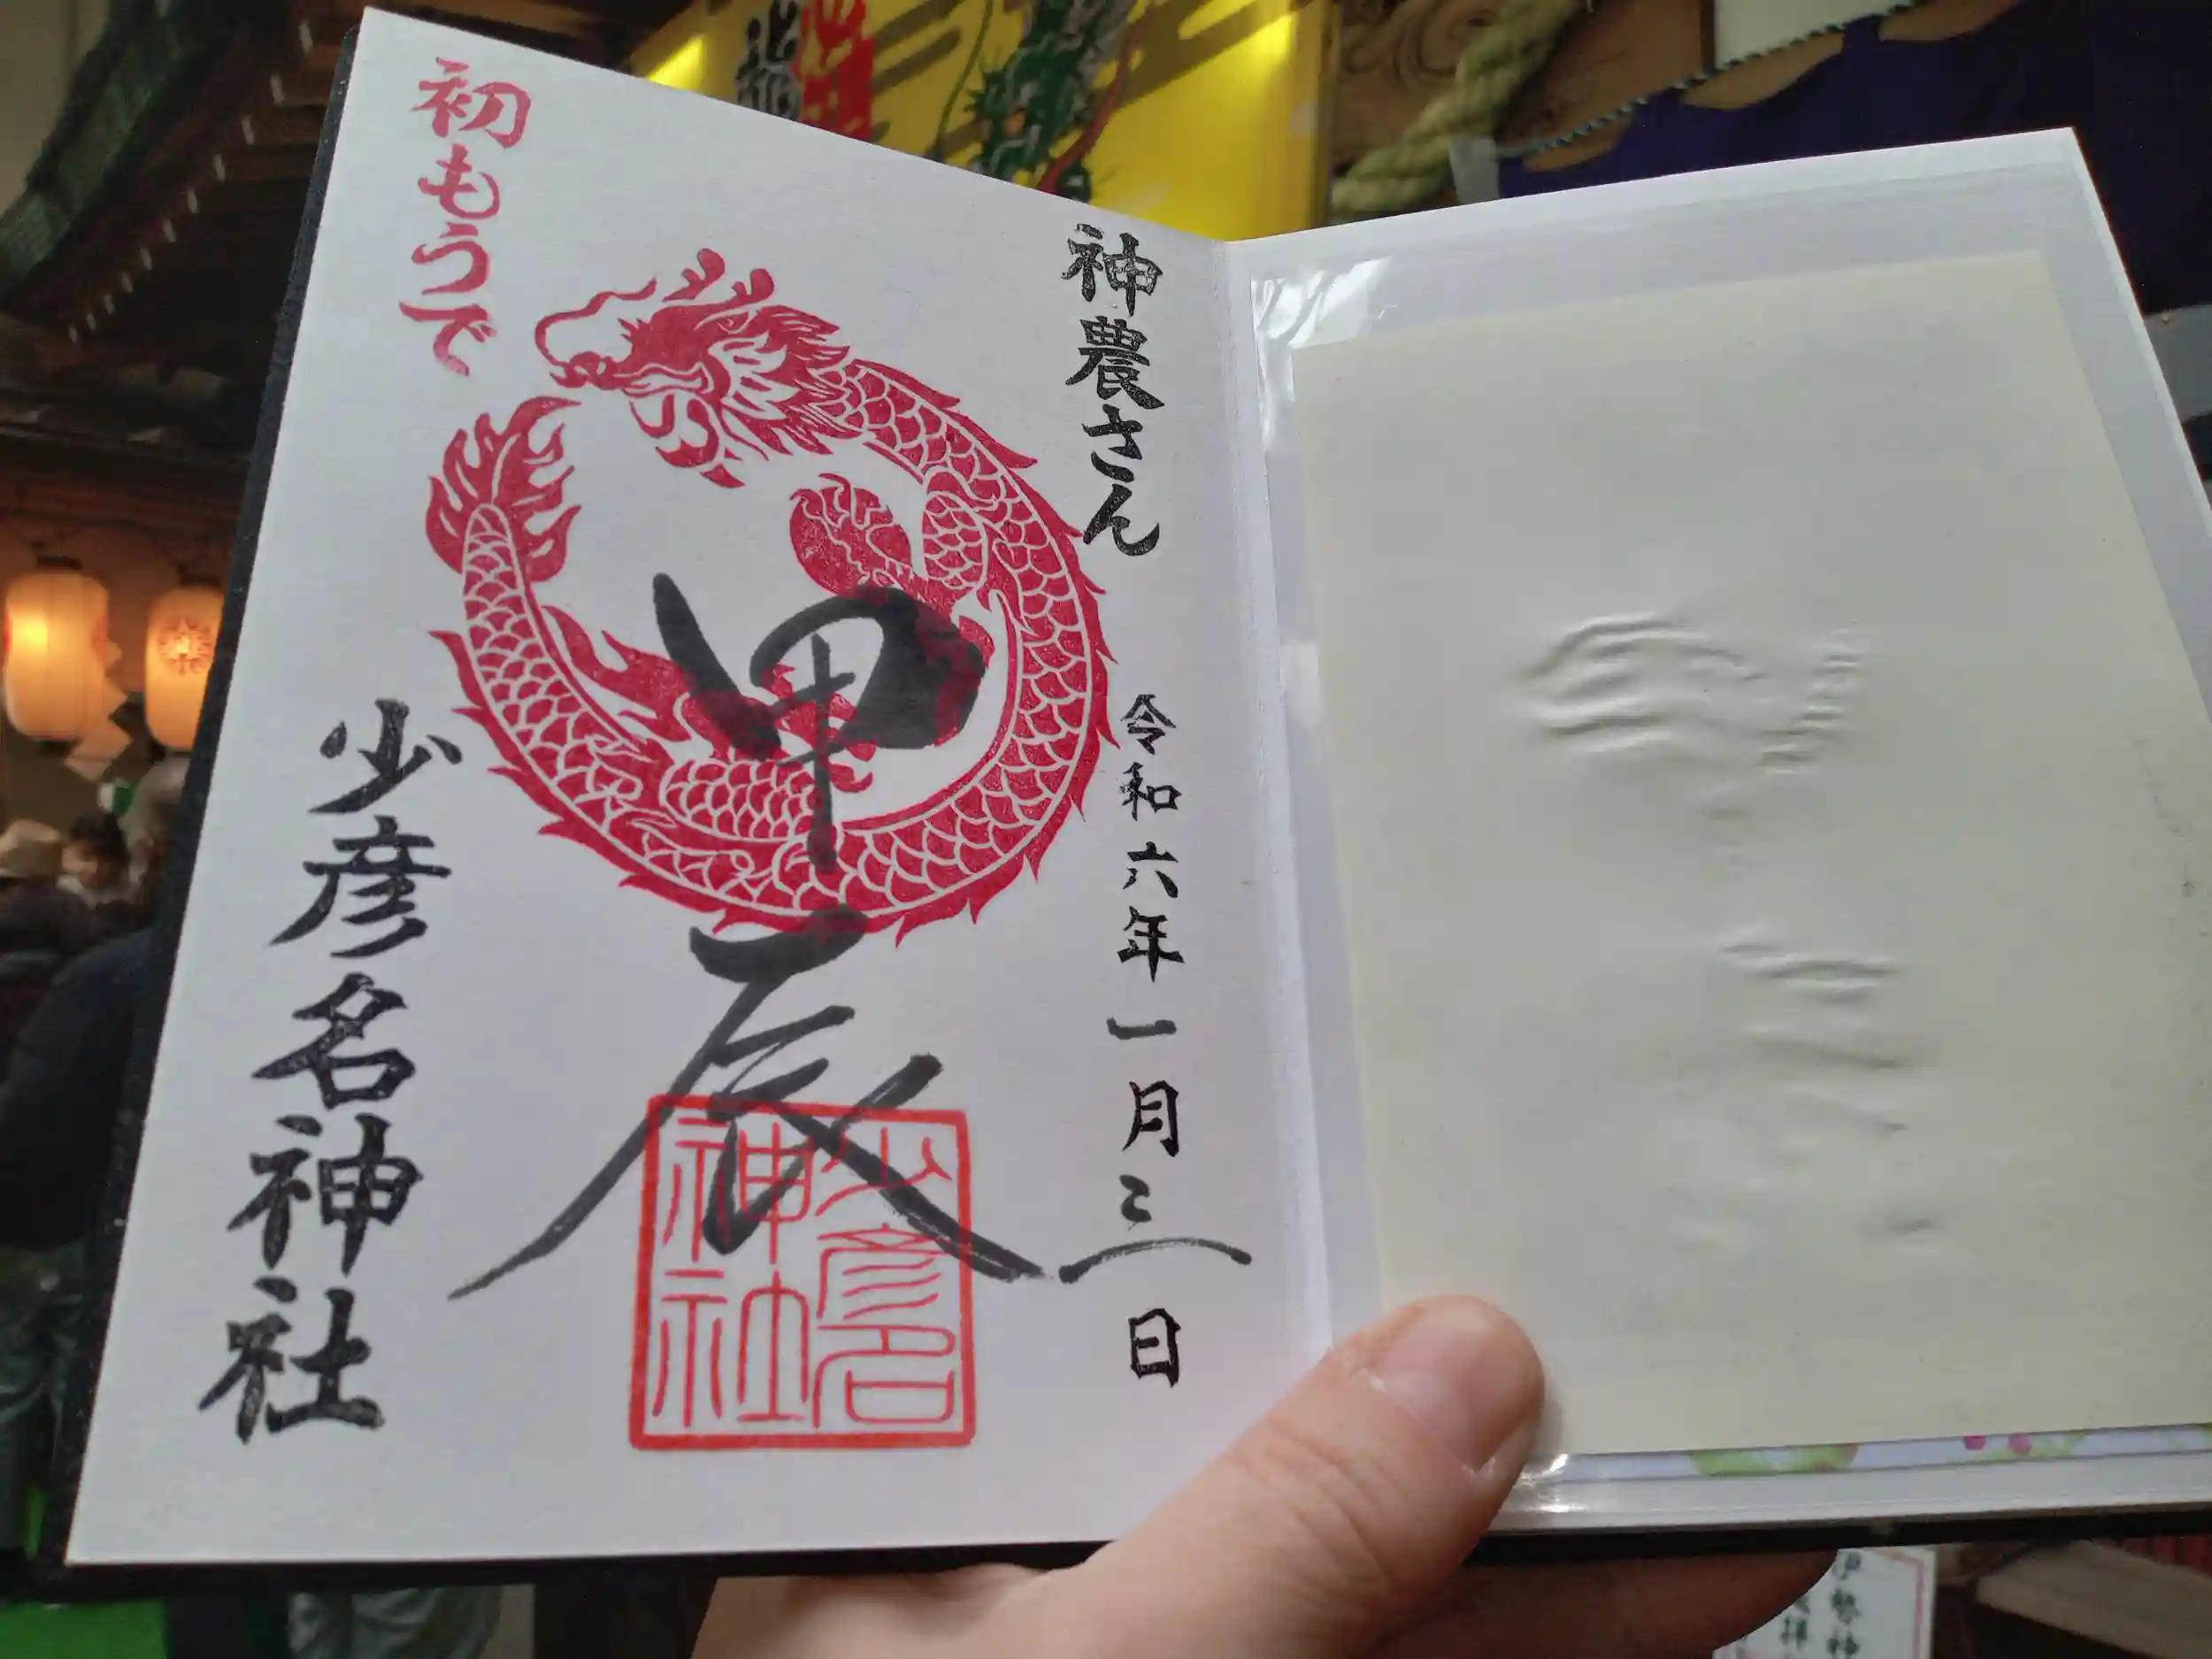 神農さん
令和六年一月三日
甲辰
少彦名
神社
初もうで
少彦名神社